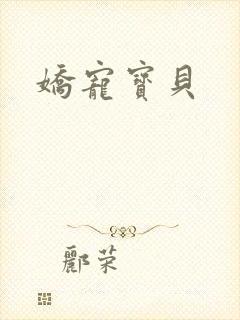 嬌寵寶貝
酈荣